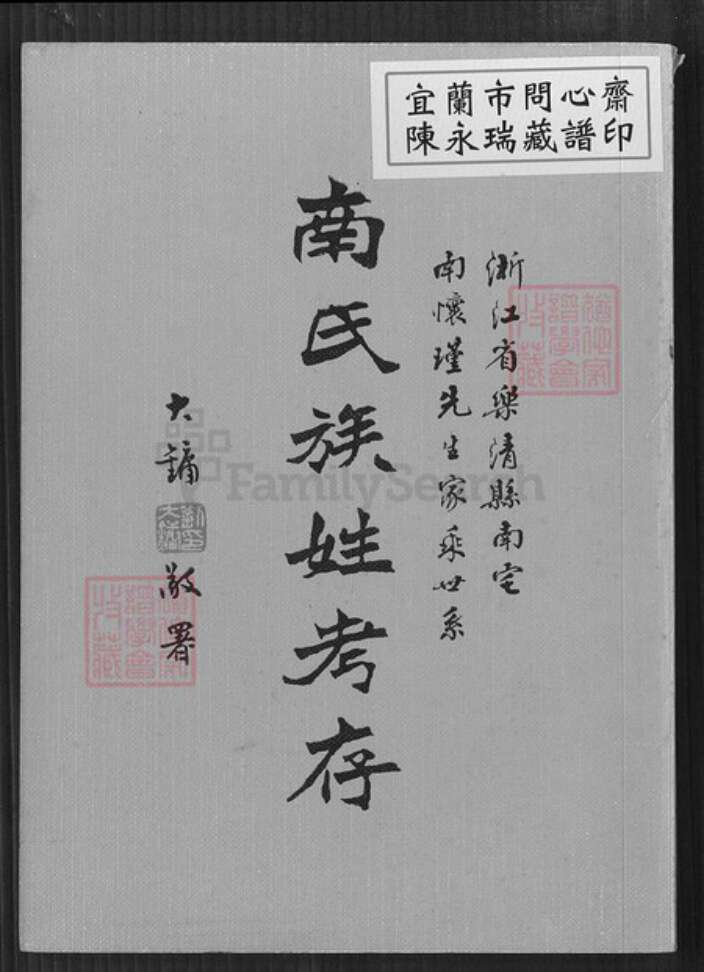 宜蘭市問心齋
陳永瑞藏譜印
浙江省樂清縣南宅
南懷瑾先生家乘世系
南氏族姓考存
大鏞
敬署
FamilySearch